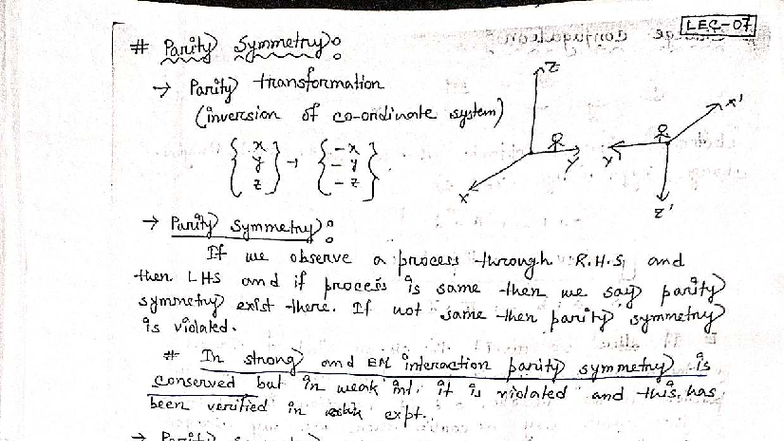 LEC-07
# Parity Symmetry:
→ Parity transformation
(inversion of co-ordinate system)
{x y z} → {-x -y -z}
z
y
x
x'
y'
z'
→ Parity Symmetry:
If we observe a process through R.H.S and
then LHS and if process is same then we say parity
symmetry exist there. If not same then parity symmetry
is violated.
# In strong and EM interaction parity symmetry is
conserved but in weak int. it is violated and this has
been verified in expt.
→ Parity